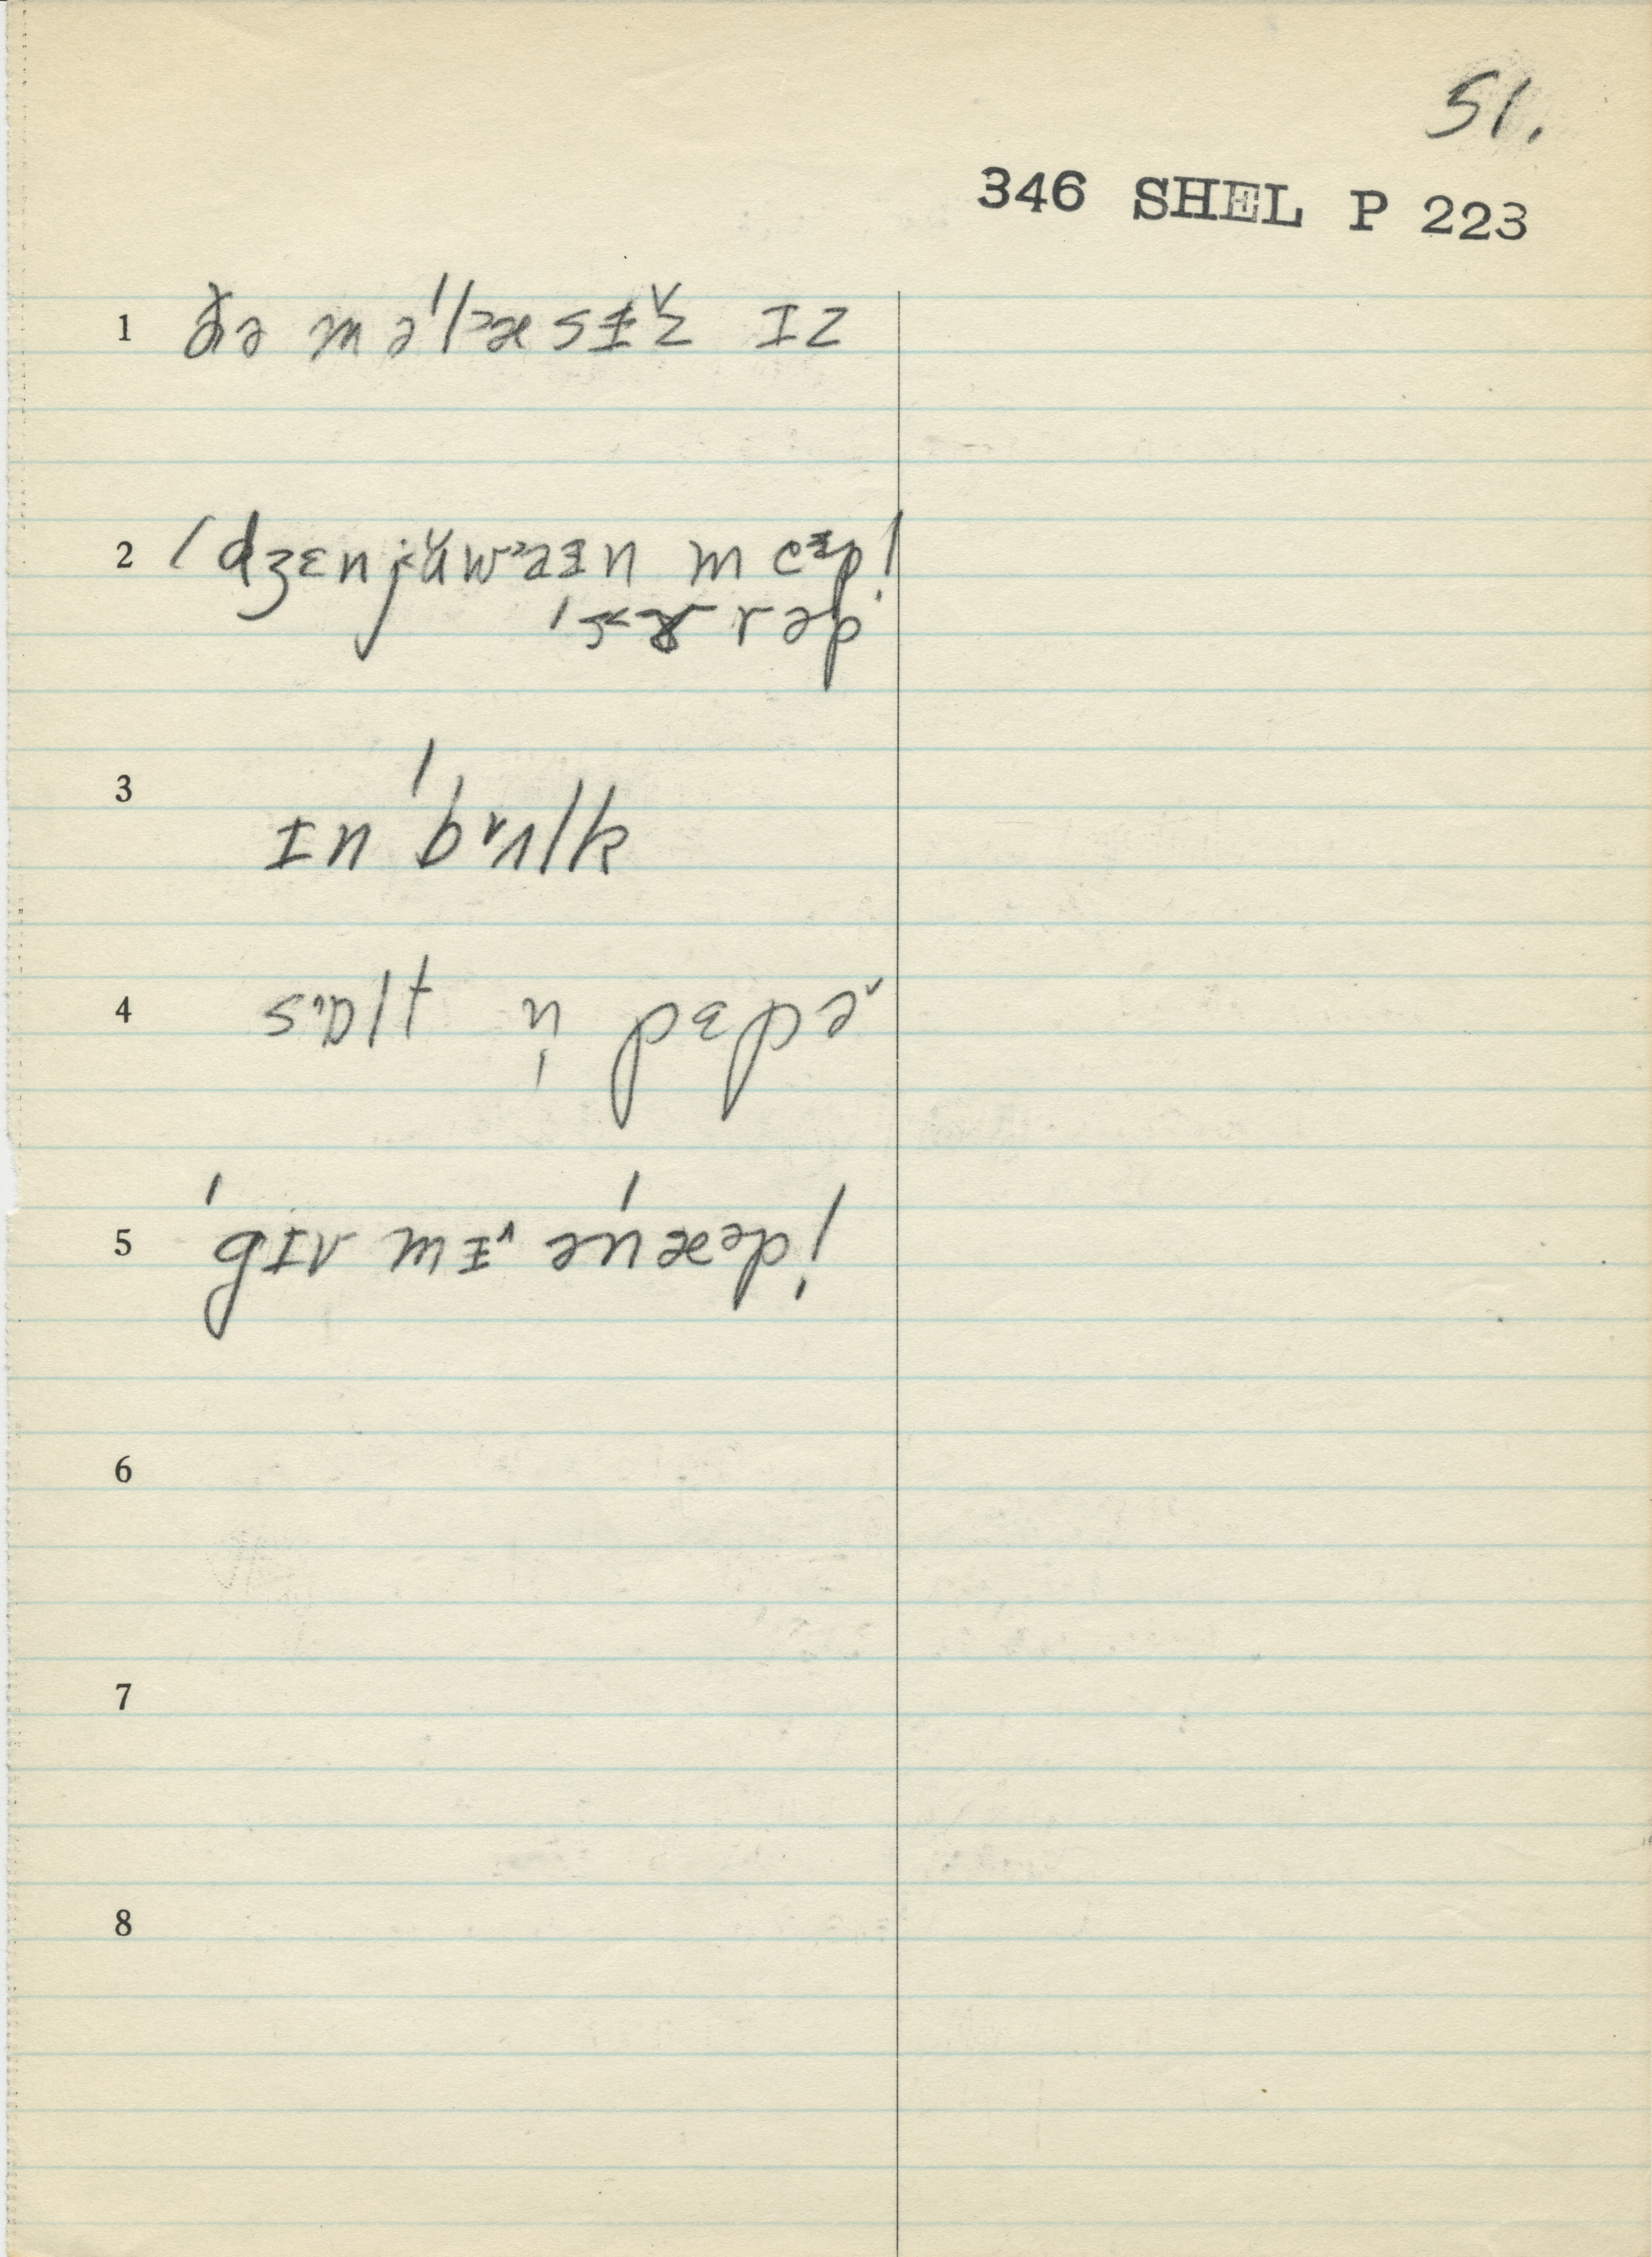 51.
346 SHEL P 223
1 ðə məˈlæsɨˇz ɪz
2 ˈdʒɛnjʉwɨn meɨpl̩
sɚrəp
3 ɪn ˈbʌlk
4 sɑlt n̩ pɛpɚ
5 ˈgɪv mɨ ənˈæpl̩
6
7
8